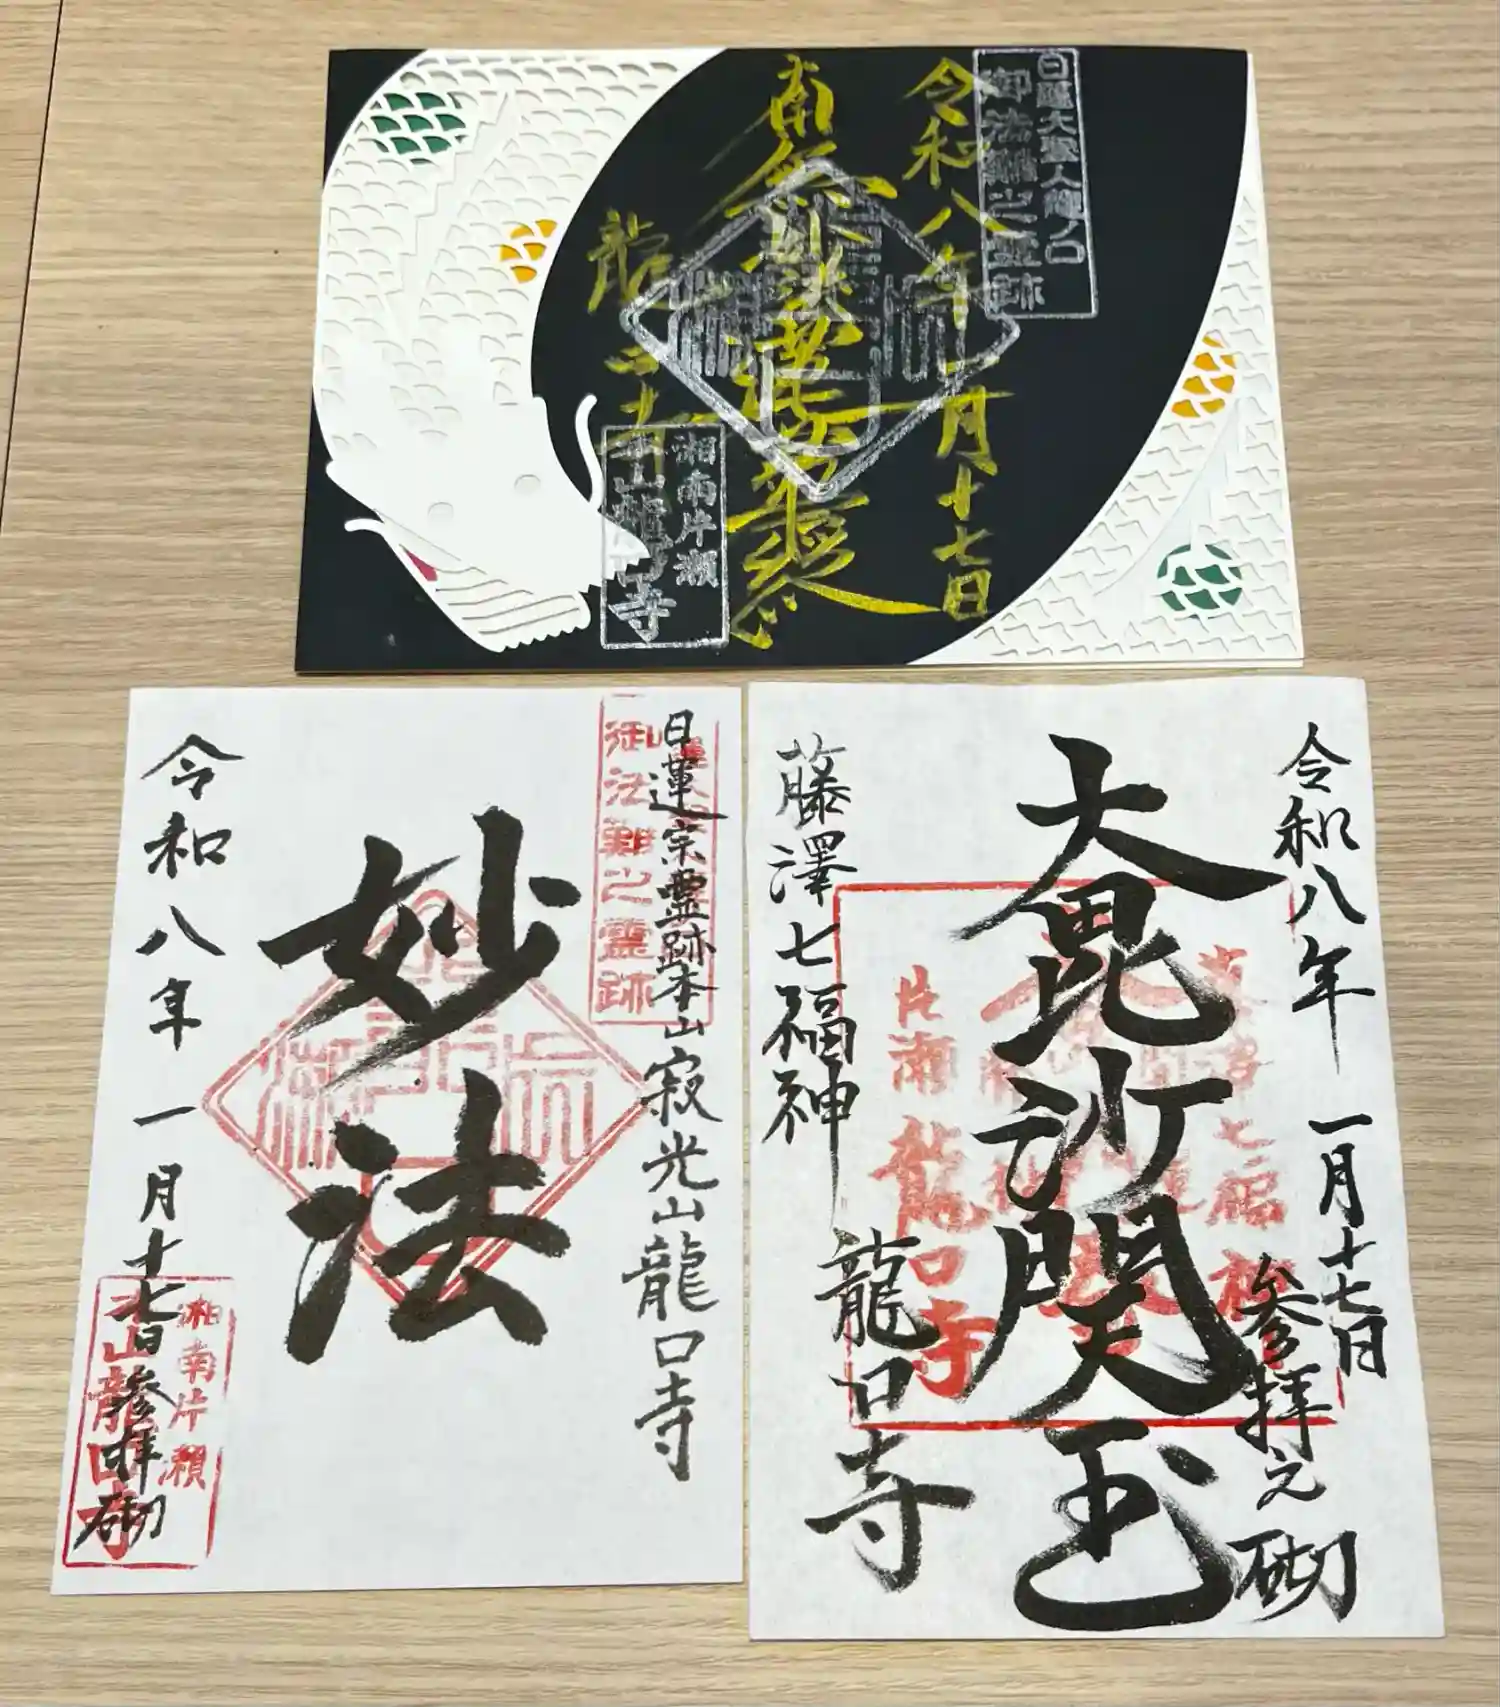 日蓮大聖人龍ノ口
御法難之霊跡
令和八年一月十七日
南無妙法蓮華経
龍口寺
湘南片瀬
本山龍口寺
御法難之靈跡
日蓮宗霊跡本山寂光山龍口寺
妙法
令和八年一月十七日参拝砌
湘南片瀬
本山龍口寺
令和八年一月十七日
参拝之砌
大毘沙門天王
藤澤七福神
龍口寺
片瀬龍口寺